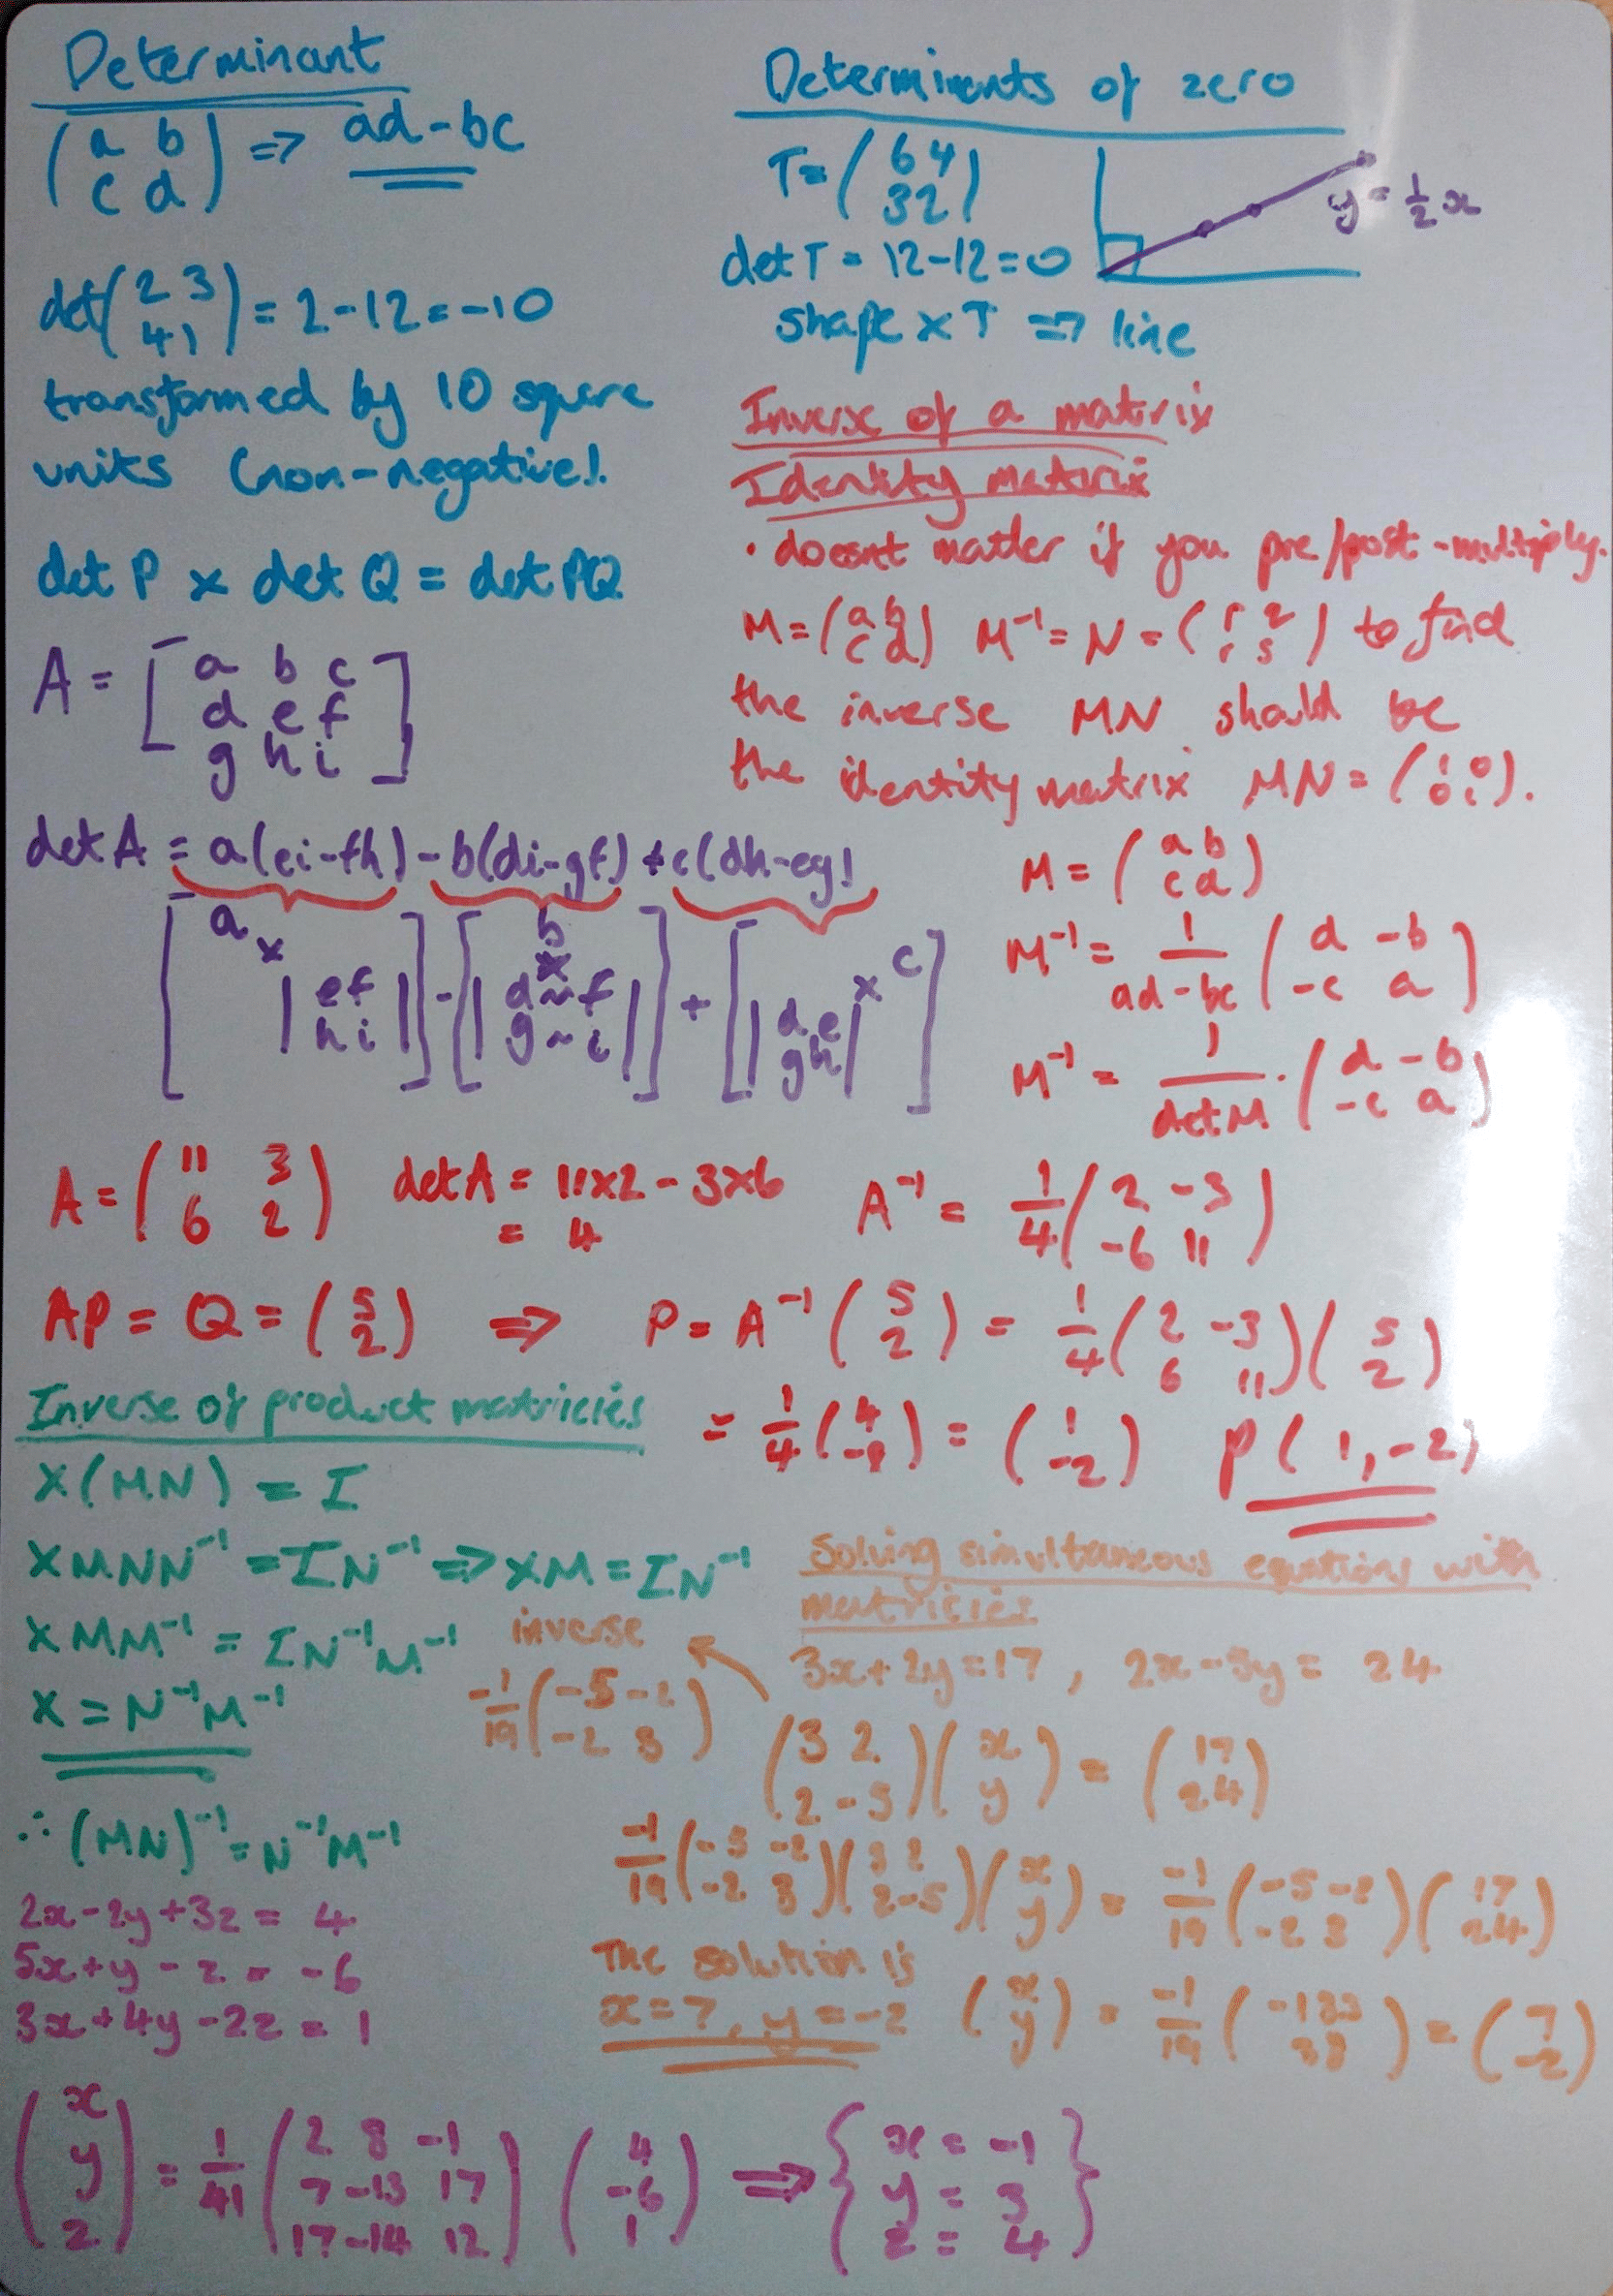 Determinant
(a b
c d) => ad-bc
det(2 3
4 1) = 2-12=-10
transformed by 10 square
units (non-negative).
det P x det Q = det PQ
A = [a b c
d e f
g h i]
det A = a(ei-fh) - b(di-gf) + c(dh-eg)
[a x |e f
h i|] - [b x |d ~ f
g ~ i|] + [|d e
g h| x c]
Determinants of zero
T = (6 4
3 2)
y = 1/2 x
det T = 12-12=0
shape x T => line
Inverse of a matrix
Identity matrix
• doesnt matter if you pre/post-multiply.
M = (a b
c d) M⁻¹ = N = ( ) to find
the inverse MN should be
the identity matrix MN = (1 0
0 1).
M = (a b
c d)
M⁻¹ = 1/(ad-bc) (d -b
-c a)
M⁻¹ = 1/det M . (d -b
-c a)
A = (11 3
6 2) det A = 11x2 - 3x6
= 4
A⁻¹ = 1/4 (2 -3
-6 11)
AP = Q = (5
2) => P = A⁻¹ (5
2) = 1/4 (2 -3
6 11)(5
2)
= 1/4 (4
-8) = (1
-2) P(1,-2)
Inverse of product matricies
X(MN) = I
XMNN⁻¹ = IN⁻¹ => XM = IN⁻¹
XMM⁻¹ = IN⁻¹M⁻¹
X = N⁻¹M⁻¹
∴ (MN)⁻¹ = N⁻¹M⁻¹
Solving simultaneous equations with
matricies
3x+2y=17, 2x-5y= 24
inverse
-1/19 (-5 -2
-2 3)
(3 2
2 -5)(x
y) = (17
24)
-1/19 (-5 -2
-2 3)(3 2
2 -5)(x
y) = -1/19 (-5 -2
-2 3)(17
24)
The solution is
x=7, y=-2
(x
y) = -1/19 (-133
38) = (7
-2)
2x-2y+3z = 4
5x+y-z = -6
3x+4y-2z = 1
(x
y
z) = 1/41 (2 8 -1
7 -13 17
17 -14 12) (4
-6
1) => {x = -1
y = 3
z = 4}